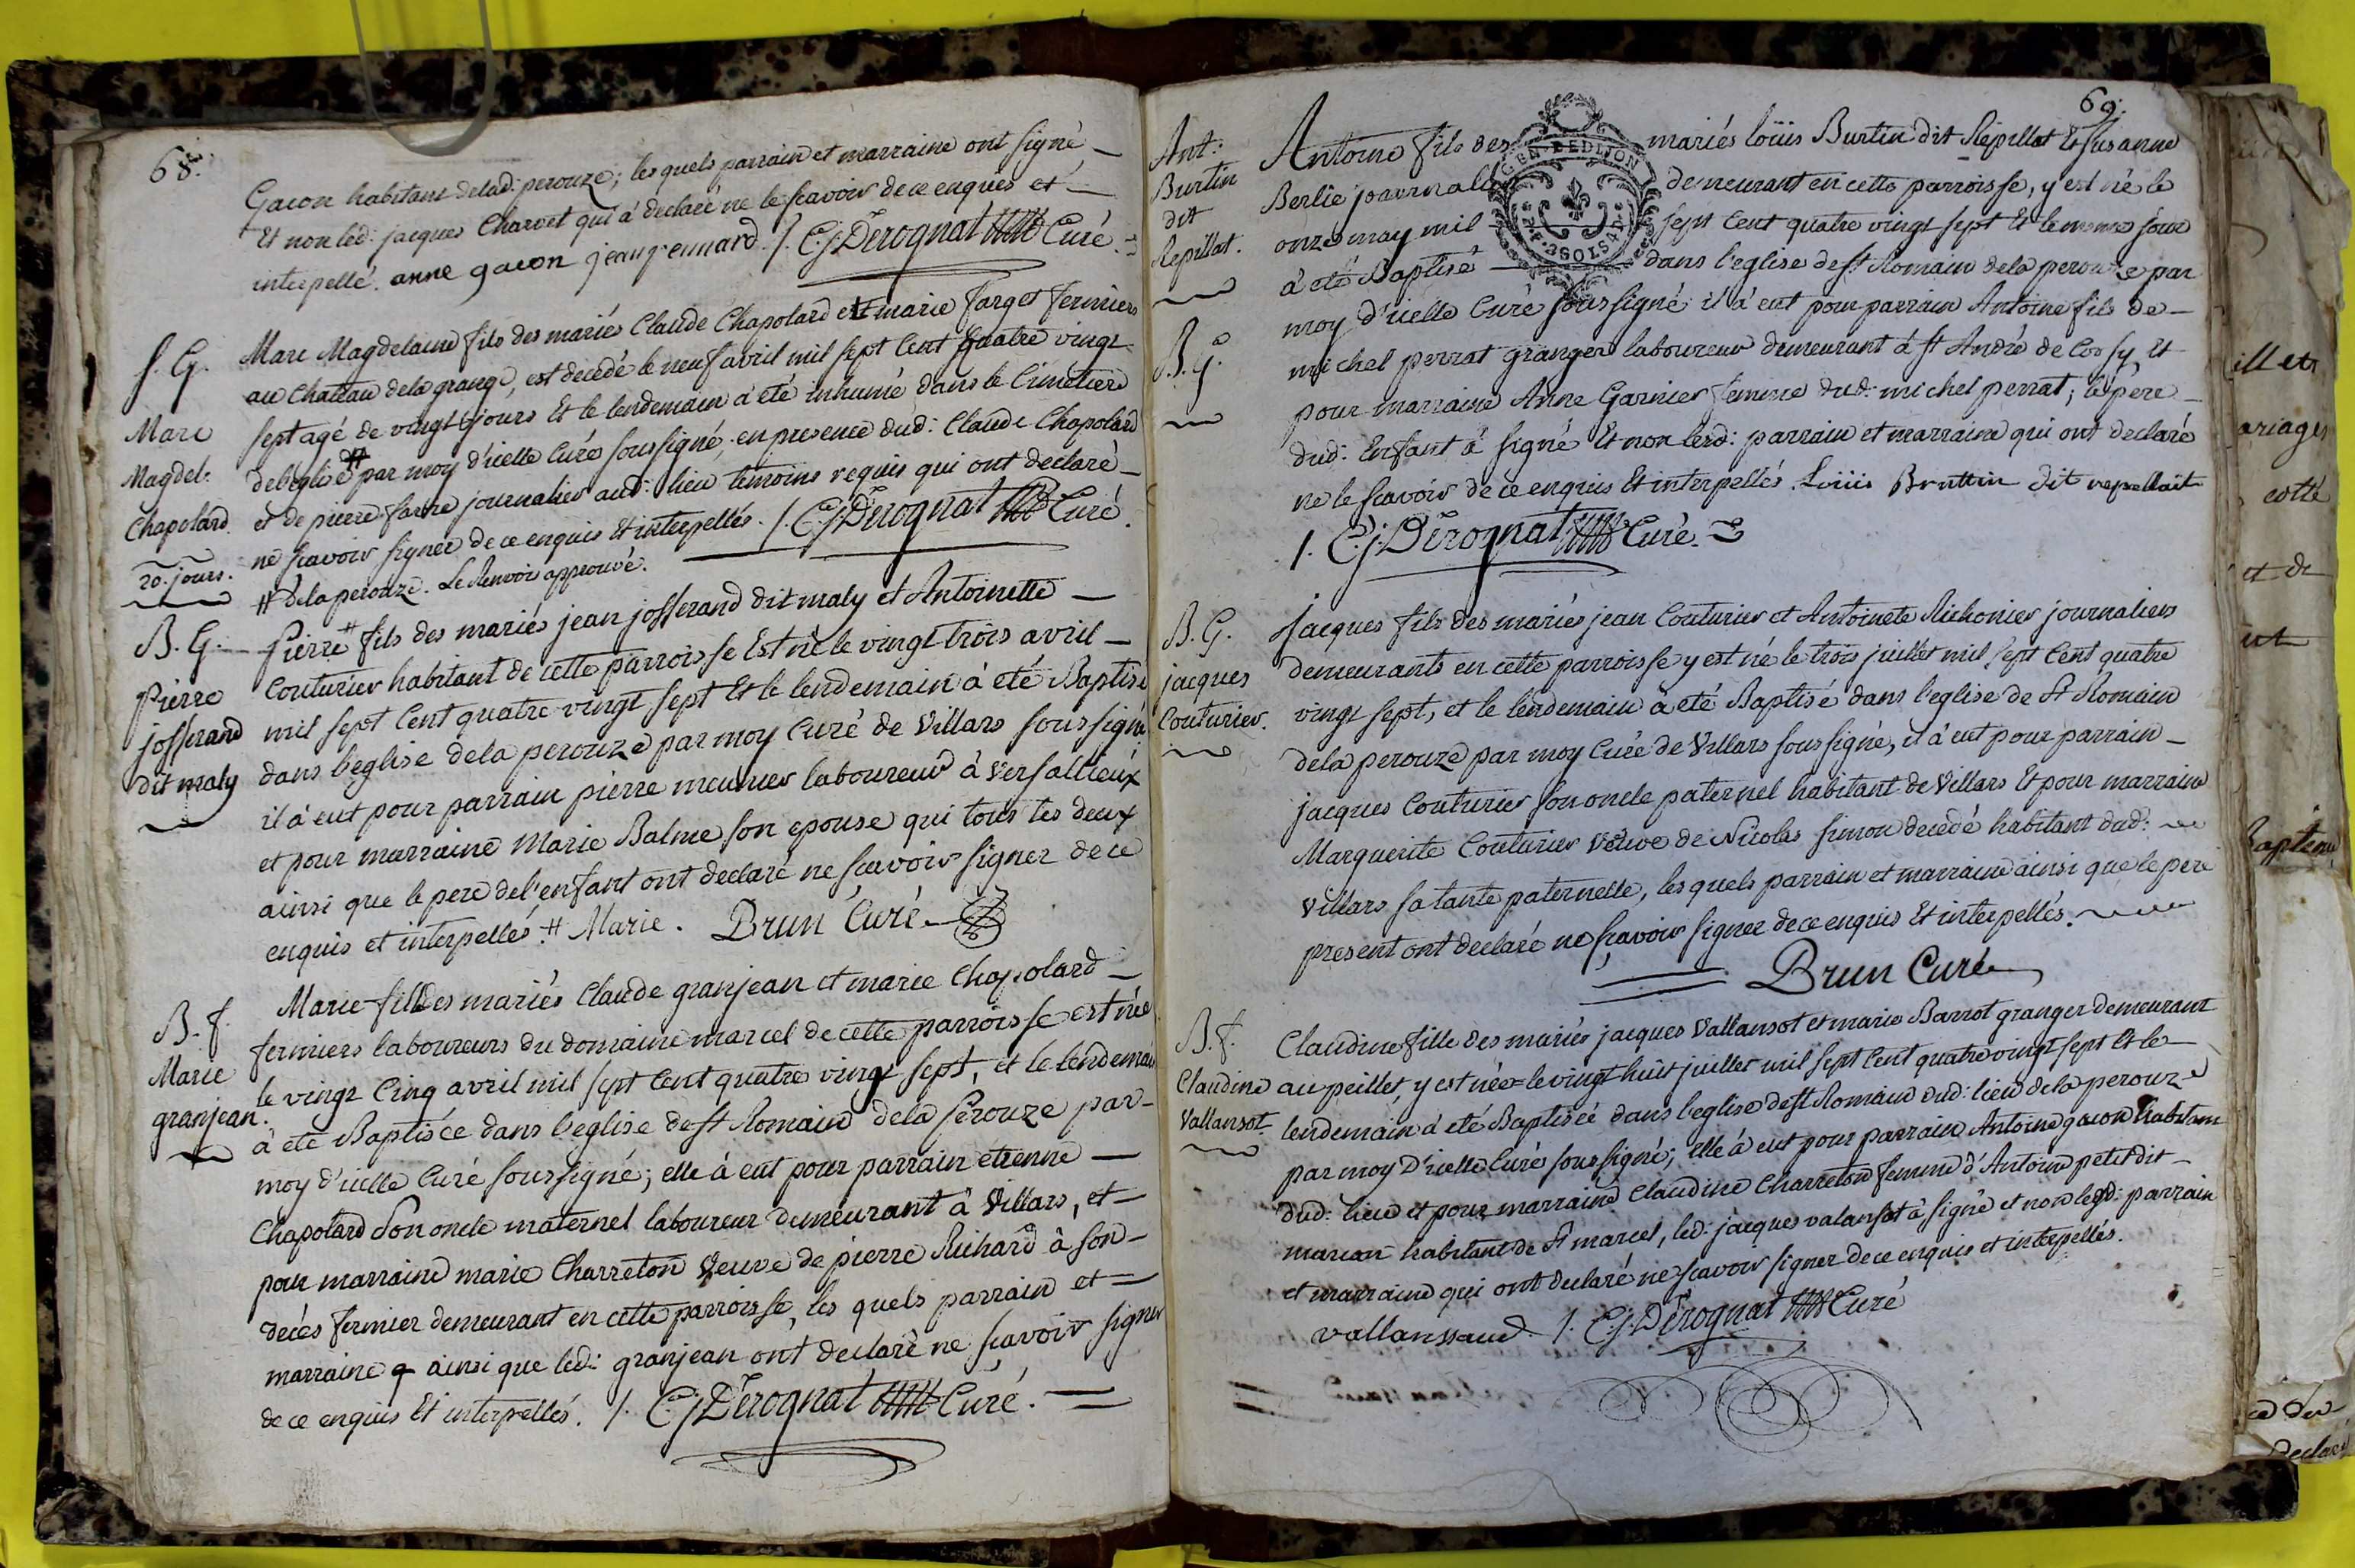 68.
Gacon habitant delad: perouze; les quels parrain et marraine ont signé
Et non led: jacques Charvet qui à declaré ne le scavoir de ce enquis et
interpellé. anne gacon jean j. ennard /. C.j. Derognat Curé.
S. G.
Marc
Magdel:
Chapolard.
20. jours.
Marc Magdelaine fils des mariés Claude Chapolard et marie farget fermiers
au Chateau dela grange, est decedé le neuf avril mil sept Cent quatre vingt
sept agé de vingt jours Et le lendemain à eté inhumé dans le Cimetiere
del'eglise # par moy d'icelle Curé soussigné, en presence dud: Claude Chapolard
et de pierre favre journalier aud: lieu temoins requis qui ont declaré
ne scavoir signer de ce enquis Et interpellés. /. C.j. Derognat Curé.
# dela perouze. Le Renvoi approuvé.
B. G.
Pierre
josserand
dit maly
Pierre # fils des mariés jean josserand dit maly et Antoinette
Couturier habitant de cette parroisse Est né le vingt trois avril
mil sept Cent quatre vingt sept Et le lendemain à eté Baptisé
dans l'eglise dela perouze par moy Curé de Villars soussigné;
il à eut pour parrain pierre meunier laboureur à Versallieux
et pour marraine Marie Balme son epouse qui tous les deux
ainsi que le pere del'enfant ont declaré ne scavoir signer de ce
enquis et interpellés. # Marie. Brun Curé
B. f.
Marie
granjean.
Marie fille des mariés Claude granjean et marie Chapolard
fermiers laboureurs du domaine marcel de cette parroisse est née
le vingt Cinq avril mil sept Cent quatre vingt sept, et le lendemain
à eté Baptisée dans l'eglise de st Romain dela Perouze par
moy d'icelle Curé soussigné; elle à eut pour parrain etienne
Chapolard Son oncle maternel laboureur demeurant à Villars, et
pour marraine marie Charreton Veuve de pierre Richard à son
decès fermier demeurant en cette parroisse, les quels parrain et
marraine ainsi que led: granjean ont declaré ne scavoir signer
de ce enquis Et interpellés. /. C.j. Derognat Curé.
69.
GEN. DE DIJON
Ant:
Burtin
dit
Repillat.
B. G.
Antoine fils des mariés loüis Burtin dit Repillat Et Susanne
Berlie journalier demeurant en cette parroisse, y est né le
onze may mil sept Cent quatre vingt sept Et le meme jour
à eté Baptisé dans l'eglise de st Romain dela perouze par
moy d'icelle Curé soussigné il à eut pour parrain Antoine fils de
michel perrat granger laboureur demeurant à st André de Corsy, Et
pour marraine Anne Garnier femme dud: michel perrat; le pere
dud: Enfant à signé Et non lesd: parrain et marraine qui ont declaré
ne le scavoir de ce enquis Et interpellés. Loüis Bruttin dit repellait
/. C.j. Derognat Curé.
B. G.
jacques
Couturier.
Jacques fils des mariés jean Couturier et Antoinete Richonier journaliers
demeurants en cette parroisse y est né le trois juillet mil sept Cent quatre
vingt sept, et le lendemain à eté Baptisé dans l'eglise de St Romain
dela perouze par moy Curé de Villars soussigné, il à eut pour parrain
jacques Couturier son oncle paternel habitant de Villars Et pour marraine
Marguerite Couturier Veuve de Nicolas Simon decedé habitant dud:
Villars sa tante paternelle, les quels parrain et marraine ainsi que le pere
present ont declaré ne scavoir signer de ce enquis Et interpellés.
Brun Curé
B. f.
Claudine
Vallansot.
Claudine fille des mariés jacques Vallansot et marie Barrot granger demeurant
au peillet, y est née le vingt huit juillet mil sept Cent quatre vingt sept Et le
lendemain à eté Baptisée dans l'eglise de st Romain dud: lieu dela perouze
par moy D'icelle Curé soussigné; elle à eut pour parrain Antoine gacon habitant
dud: lieu et pour marraine Claudine Charreton femme d'Antoine petit dit
marcan habitant de St marcel, led: jacques valansot à signé et non lesd: parrain
et marraine qui ont declaré ne scavoir signer de ce enquis et interpellés.
vallanssaud. /. C.j. Derognat Curé
illet
ariages
cotté
et de
Declaré